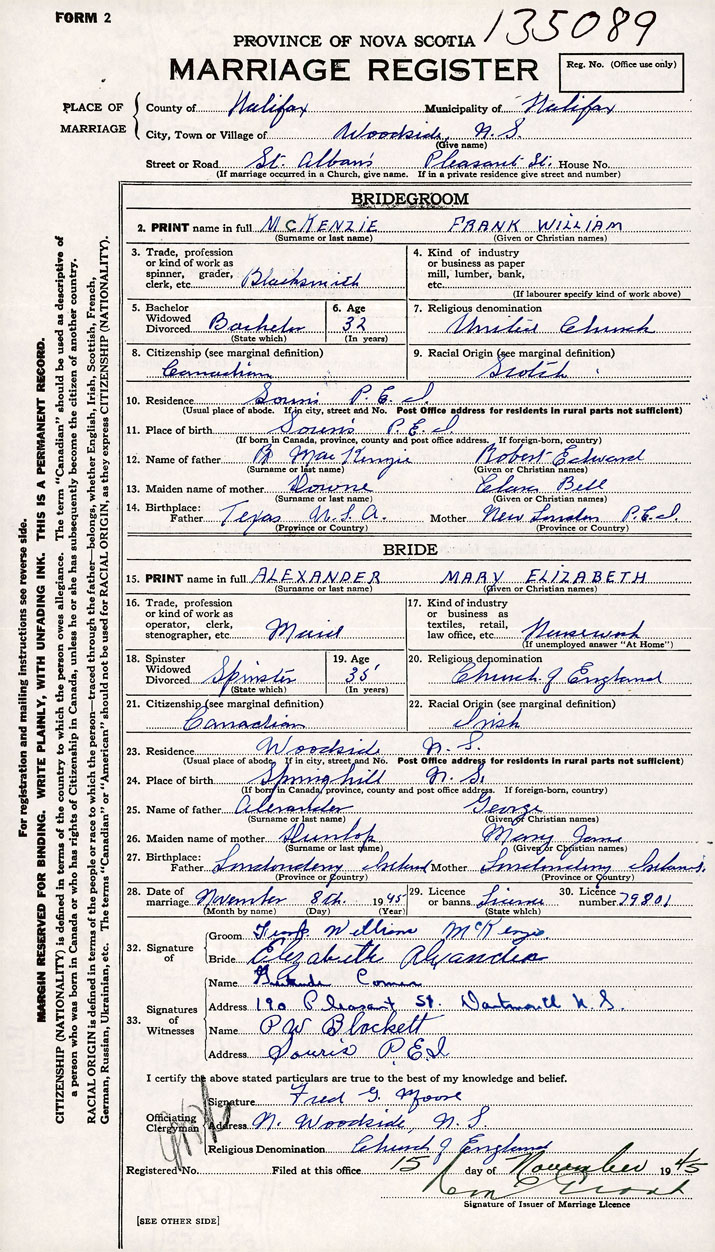 FORM 2
135089
PROVINCE OF NOVA SCOTIA
MARRIAGE REGISTER
Reg. No. (Office use only)
PLACE OF MARRIAGE
County of Halifax Municipality of Halifax
City, Town or Village of Woodside, N.S.
(Give name)
Street or Road St. Albans Pleasant St. House No.
(If marriage occurred in a Church, give name. If in a private residence give street and number)
BRIDEGROOM
2. PRINT name in full McKENZIE FRANK WILLIAM
(Surname or last name) (Given or Christian names)
3. Trade, profession or kind of work as spinner, grader, clerk, etc. Blacksmith
4. Kind of industry or business as paper mill, lumber, bank, etc.
(If labourer specify kind of work above)
5. Bachelor Widowed Divorced Bachelor
(State which)
6. Age 32
(In years)
7. Religious denomination United Church
8. Citizenship (see marginal definition) Canadian
9. Racial Origin (see marginal definition) Scotch
10. Residence Souris P.E.I.
(Usual place of abode. If in city, street and No. Post Office address for residents in rural parts not sufficient)
11. Place of birth Souris P.E.I.
(If born in Canada, province, county and post office address. If foreign-born, country)
12. Name of father MacKenzie Robert Edward
(Surname or last name) (Given or Christian names)
13. Maiden name of mother Clara Bell
(Surname or last name) (Given or Christian names)
14. Birthplace: Father Texas U.S.A. Mother New London P.E.I.
(Province or Country) (Province or Country)
BRIDE
15. PRINT name in full ALEXANDER MARY ELIZABETH
(Surname or last name) (Given or Christian names)
16. Trade, profession or kind of work as operator, clerk, stenographer, etc. Maid
17. Kind of industry or business as textiles, retail, law office, etc.
(If unemployed answer "At Home")
18. Spinster Widowed Divorced Spinster
(State which)
19. Age 35
(In years)
20. Religious denomination Church of England
21. Citizenship (see marginal definition) Canadian
22. Racial Origin (see marginal definition) Irish
23. Residence Woodside N.S.
(Usual place of abode. If in city, street and No. Post Office address for residents in rural parts not sufficient)
24. Place of birth Springhill N.S.
(If born in Canada, province, county and post office address. If foreign-born, country)
25. Name of father Alexander George
(Surname or last name) (Given or Christian names)
26. Maiden name of mother Dunlop Mary Jane
(Surname or last name) (Given or Christian names)
27. Birthplace: Father Londonderry Ireland Mother Londonderry Ireland
(Province or Country) (Province or Country)
28. Date of marriage November 8th. 1945
(Month by name) (Day) (Year)
29. Licence or banns License
(State which)
30. Licence number 79801
32. Signature of
Groom Frank William McKenzie
Bride Elizabeth Alexander
33. Signatures of Witnesses
Name Gertrude
Address 190 Pleasant St. Dartmouth N.S.
Name P W Blockett
Address Souris P.E.I
I certify the above stated particulars are true to the best of my knowledge and belief.
Officiating Clergyman
Signature Fred G. Moore
Address N. Woodside, N.S
Religious Denomination Church of England
Registered No. Filed at this office 15 day of November 1945
Signature of Issuer of Marriage Licence
[SEE OTHER SIDE]
For registration and mailing instructions see reverse side.
MARGIN RESERVED FOR BINDING. WRITE PLAINLY, WITH UNFADING INK. THIS IS A PERMANENT RECORD.
CITIZENSHIP (NATIONALITY) is defined in terms of the country to which the person owes allegiance. The term "Canadian" should be used as descriptive of
a person who was born in Canada or who has rights of Citizenship in Canada, unless he or she has subsequently become the citizen of another country.
RACIAL ORIGIN is defined in terms of the people or race to which the person—traced through the father—belongs, whether English, Irish, Scottish, French,
German, Russian, Ukrainian, etc. The terms "Canadian" or "American" should not be used for RACIAL ORIGIN, as they express CITIZENSHIP (NATIONALITY).